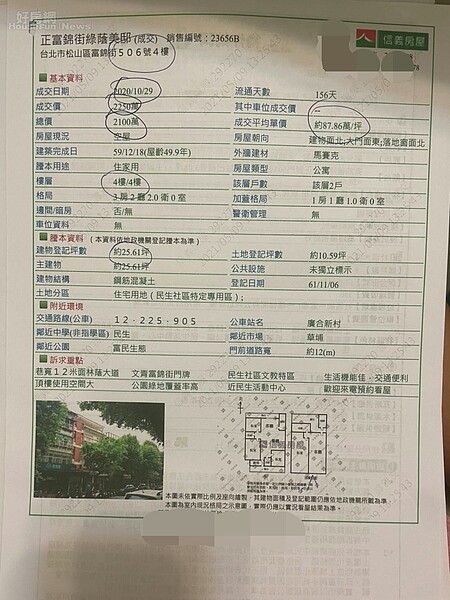 好房網
HouseFun News
正富錦街綠蔭美邸(成交) 銷售編號:23656B
台北市松山區富錦街506號4樓
信義房屋
基本資料
成交日期 2020/10/29 流通天數 156天
成交價 2250萬 其中車位成交價 --
總價 2100萬 成交平均單價 約87.86萬/坪
房屋現況 空屋 房屋朝向 建物面北;大門面東;落地窗面北
建築完成日 59/12/18(屋齡49.9年) 外牆建材 馬賽克
謄本用途 住家用 房屋類型 公寓
樓層 4樓/4樓 該層戶數 該層2戶
格局 3房2廳2.0衛0室 加蓋格局 1房1廳1.0衛0室
邊間/暗房 否/無 警衛管理 無
車位資料 無
謄本資料 (本資料依地政機關登記謄本為準)
建物登記坪數 約25.61坪 土地登記坪數 約10.59坪
主建物 約25.61坪 公共設施 未獨立標示
建物結構 鋼筋混凝土 登記日期 61/11/06
土地分區 住宅用地(民生社區特定專用區);
附近環境
交通路線(公車) 12.225.905 公車站名 廣合新村
鄰近中學(非指學區) 民生 鄰近市場 草埔
鄰近公園 富民生態 門前道路寬 約12(m)
訴求重點
巷寬12米面林蔭大道 文青富錦街門牌 民生社區文教特區 生活機能佳、交通便利
頂樓使用空間大 公園綠地覆蓋率高 近民生活動中心 歡迎來電預約看屋
本圖未依實際比例及座向繪製,其建物面積及登記範圍仍應依地政機關所載為準。
本圖為室內現況格局之示意圖,實際仍應以實況看屋結果為準。